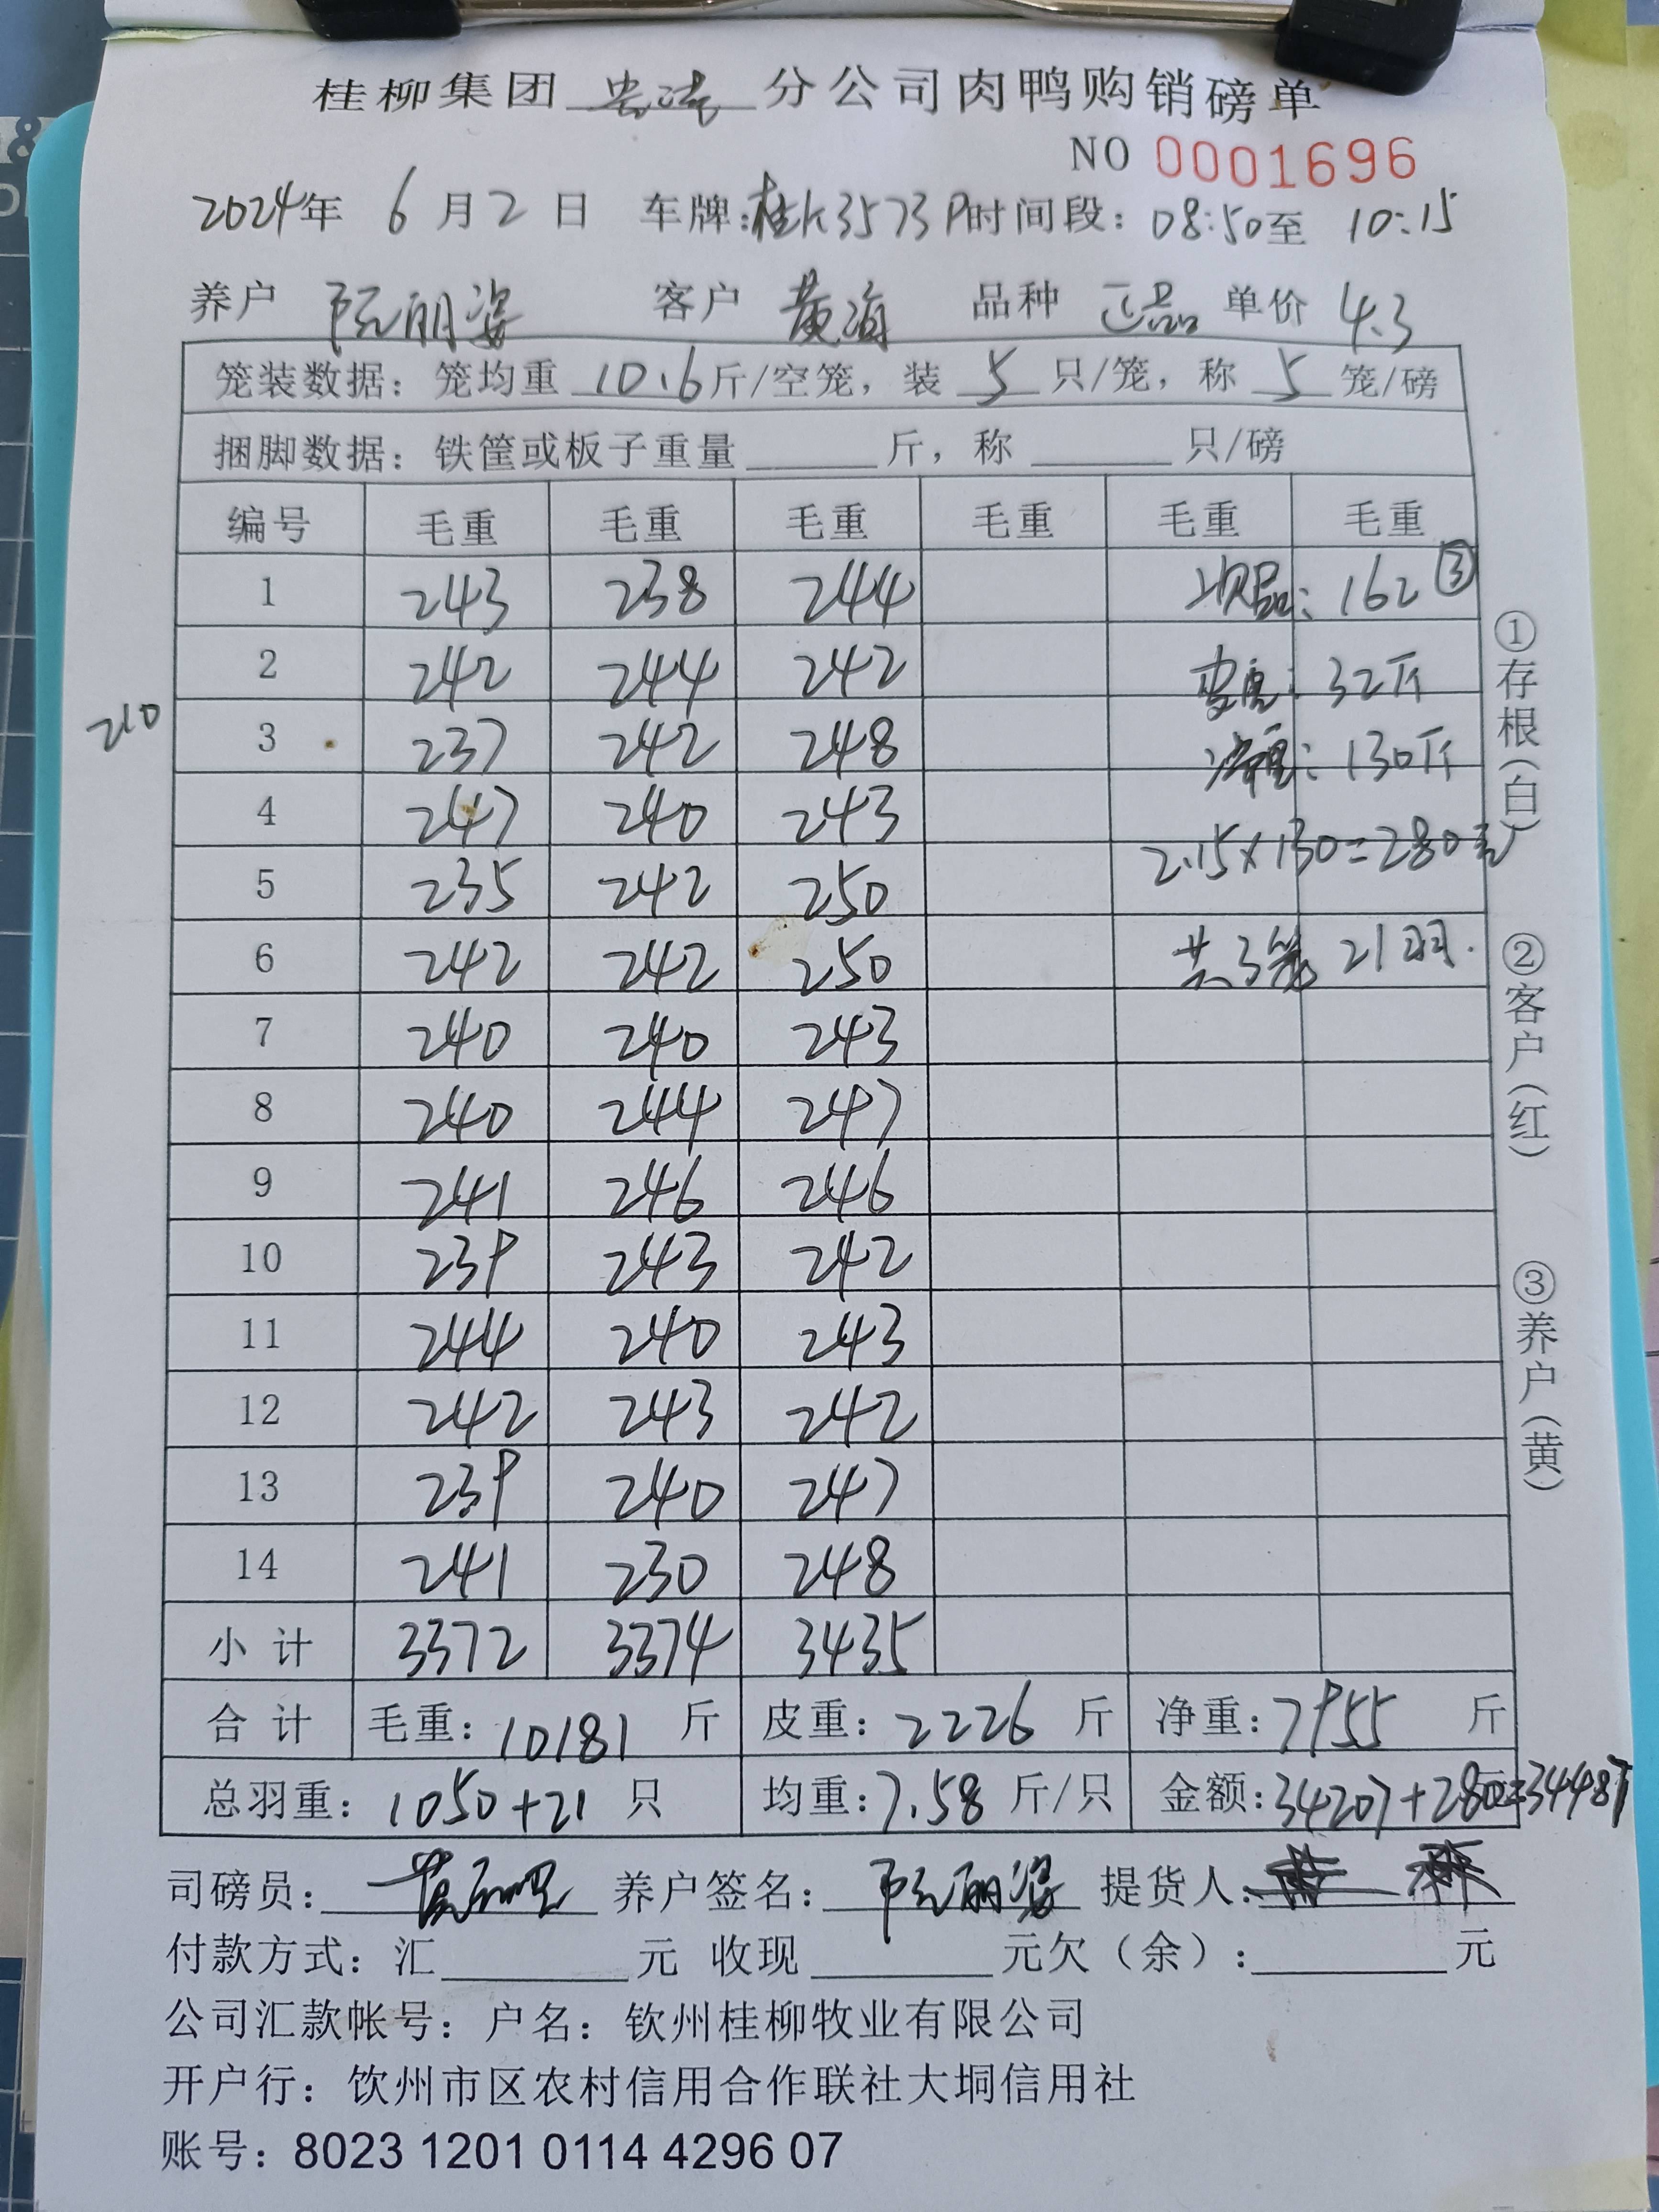 桂柳集团 分公司肉鸭购销磅单
NO 0001696
2024年 6月2日 车牌:桂K3573P时间段: 08:50至 10:15
养户 阮丽姿 客户 黄海 品种 正品 单价 4.3
笼装数据: 笼均重 10.6斤/空笼, 装 5 只/笼, 称 5 笼/磅
捆脚数据: 铁筐或板子重量 斤, 称 只/磅
编号 毛重 毛重 毛重 毛重 毛重 毛重
1 243 238 244 次品: 162 ③
2 242 244 242 皮重: 32斤
210
3 237 242 248 净重: 130斤
4 247 240 243
2.15×130=280元
5 235 242 250
6 242 242 250 共3笼 21羽.
7 240 240 243
8 240 244 247
9 241 246 246
10 239 243 242
11 244 240 243
12 242 243 242
13 239 240 247
14 241 230 248
小计 3372 3374 3435
合计 毛重: 10181 斤 皮重: 2226 斤 净重: 7955 斤
总羽重: 1050+21 只 均重: 7.58 斤/只 金额: 34207+280=34487
司磅员: 养户签名: 阮丽姿 提货人:
付款方式: 汇 元 收现 元欠(余): 元
公司汇款帐号: 户名: 钦州桂柳牧业有限公司
开户行: 钦州市区农村信用合作联社大垌信用社
账号: 8023 1201 0114 4296 07
①存根(白)
②客户(红)
③养户(黄)